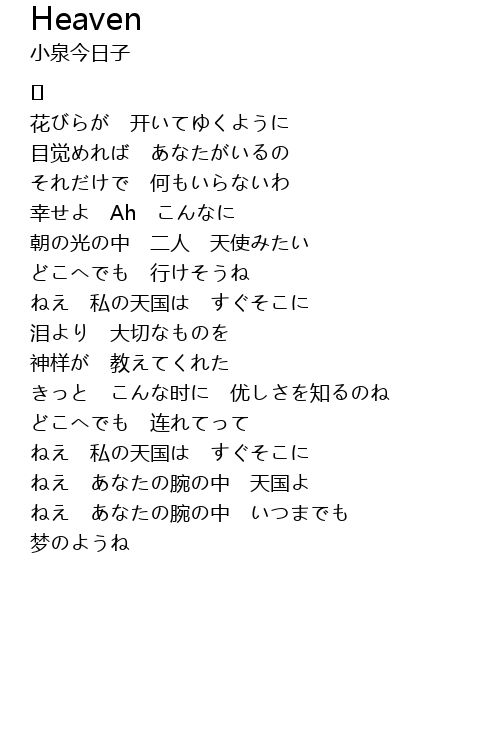 Heaven
小泉今日子
花びらが　开いてゆくように
目覚めれば　あなたがいるの
それだけで　何もいらないわ
幸せよ　Ah　こんなに
朝の光の中　二人　天使みたい
どこへでも　行けそうね
ねえ　私の天国は　すぐそこに
泪より　大切なものを
神样が　教えてくれた
きっと　こんな时に　优しさを知るのね
どこへでも　连れてって
ねえ　私の天国は　すぐそこに
ねえ　あなたの腕の中　天国よ
ねえ　あなたの腕の中　いつまでも
梦のようね